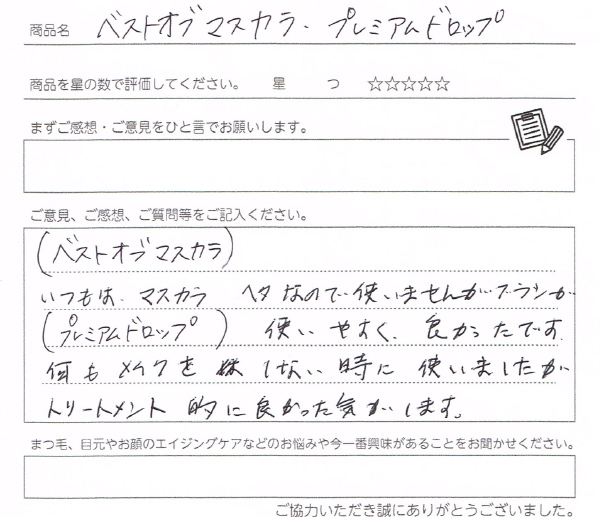 商品名 ベストオブマスカラ・プレミアムドロップ
商品を星の数で評価してください。 星 つ ☆☆☆☆☆
まずご感想・ご意見をひと言でお願いします。
ご意見、ご感想、ご質問等をご記入ください。
(ベストオブマスカラ)
いつもは、マスカラ ヘタなので使いませんがブラシが
(プレミアムドロップ) 使いやすく、良かったです。
何もメイクを しない時に使いましたが
トリートメント的に良かった気がします。
まつ毛、目元やお顔のエイジングケアなどのお悩みや今一番興味があることをお聞かせください。
ご協力いただき誠にありがとうございました。